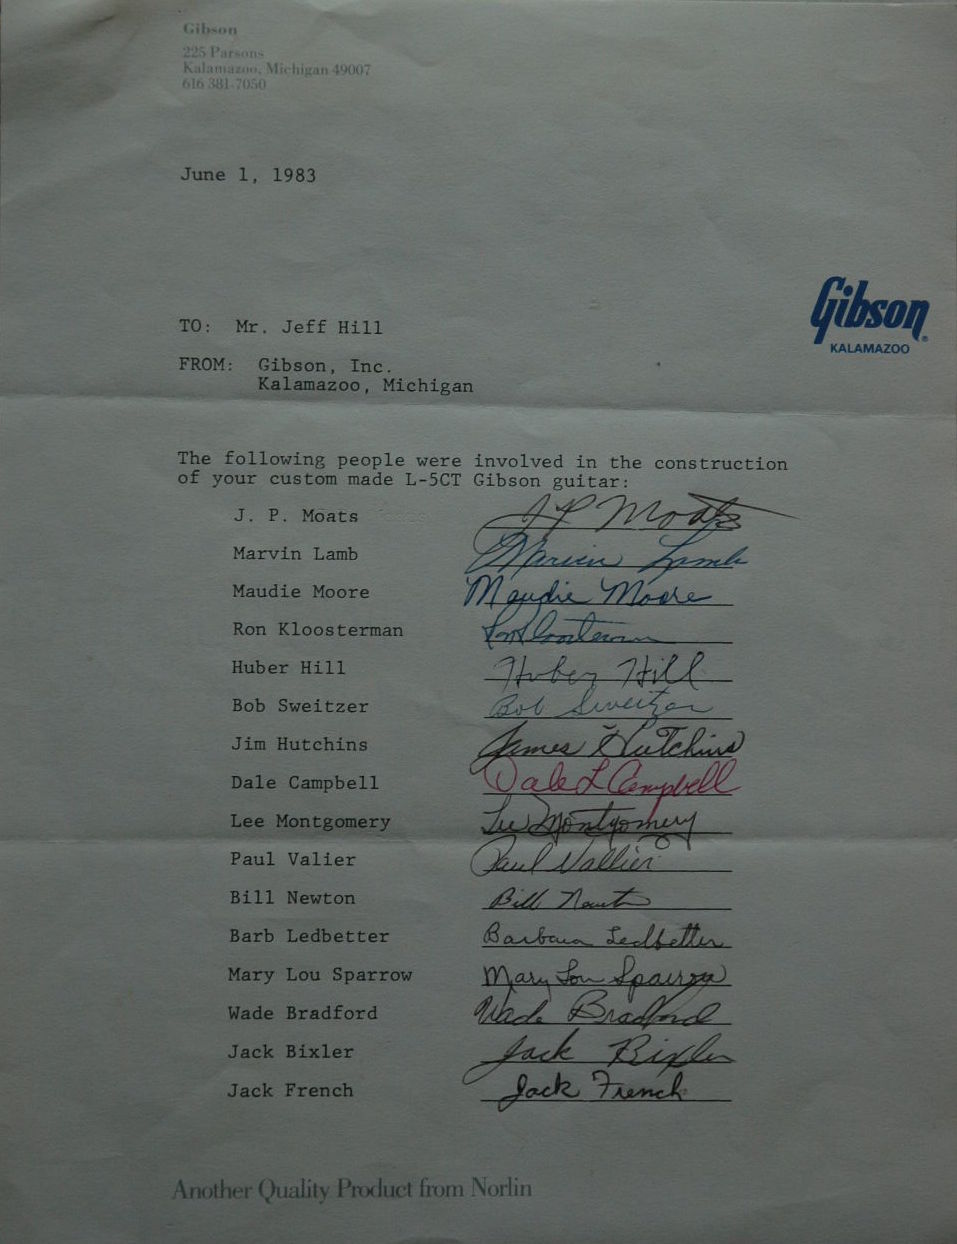 Gibson
225 Parsons
Kalamazoo, Michigan 49007
616 381-7050
June 1, 1983
Gibson
KALAMAZOO
TO: Mr. Jeff Hill
FROM: Gibson, Inc.
Kalamazoo, Michigan
The following people were involved in the construction
of your custom made L-5CT Gibson guitar:
J. P. Moats J P Moats
Marvin Lamb Marvin Lamb
Maudie Moore Maudie Moore
Ron Kloosterman Ron Kloosterman
Huber Hill Huber Hill
Bob Sweitzer Bob Sweitzer
Jim Hutchins James Hutchins
Dale Campbell Dale L Campbell
Lee Montgomery Lee Montgomery
Paul Valier Paul Vallier
Bill Newton Bill Newton
Barb Ledbetter Barbara Ledbetter
Mary Lou Sparrow Mary Lou Sparrow
Wade Bradford Wade Bradford
Jack Bixler Jack Bixler
Jack French Jack French
Another Quality Product from Norlin